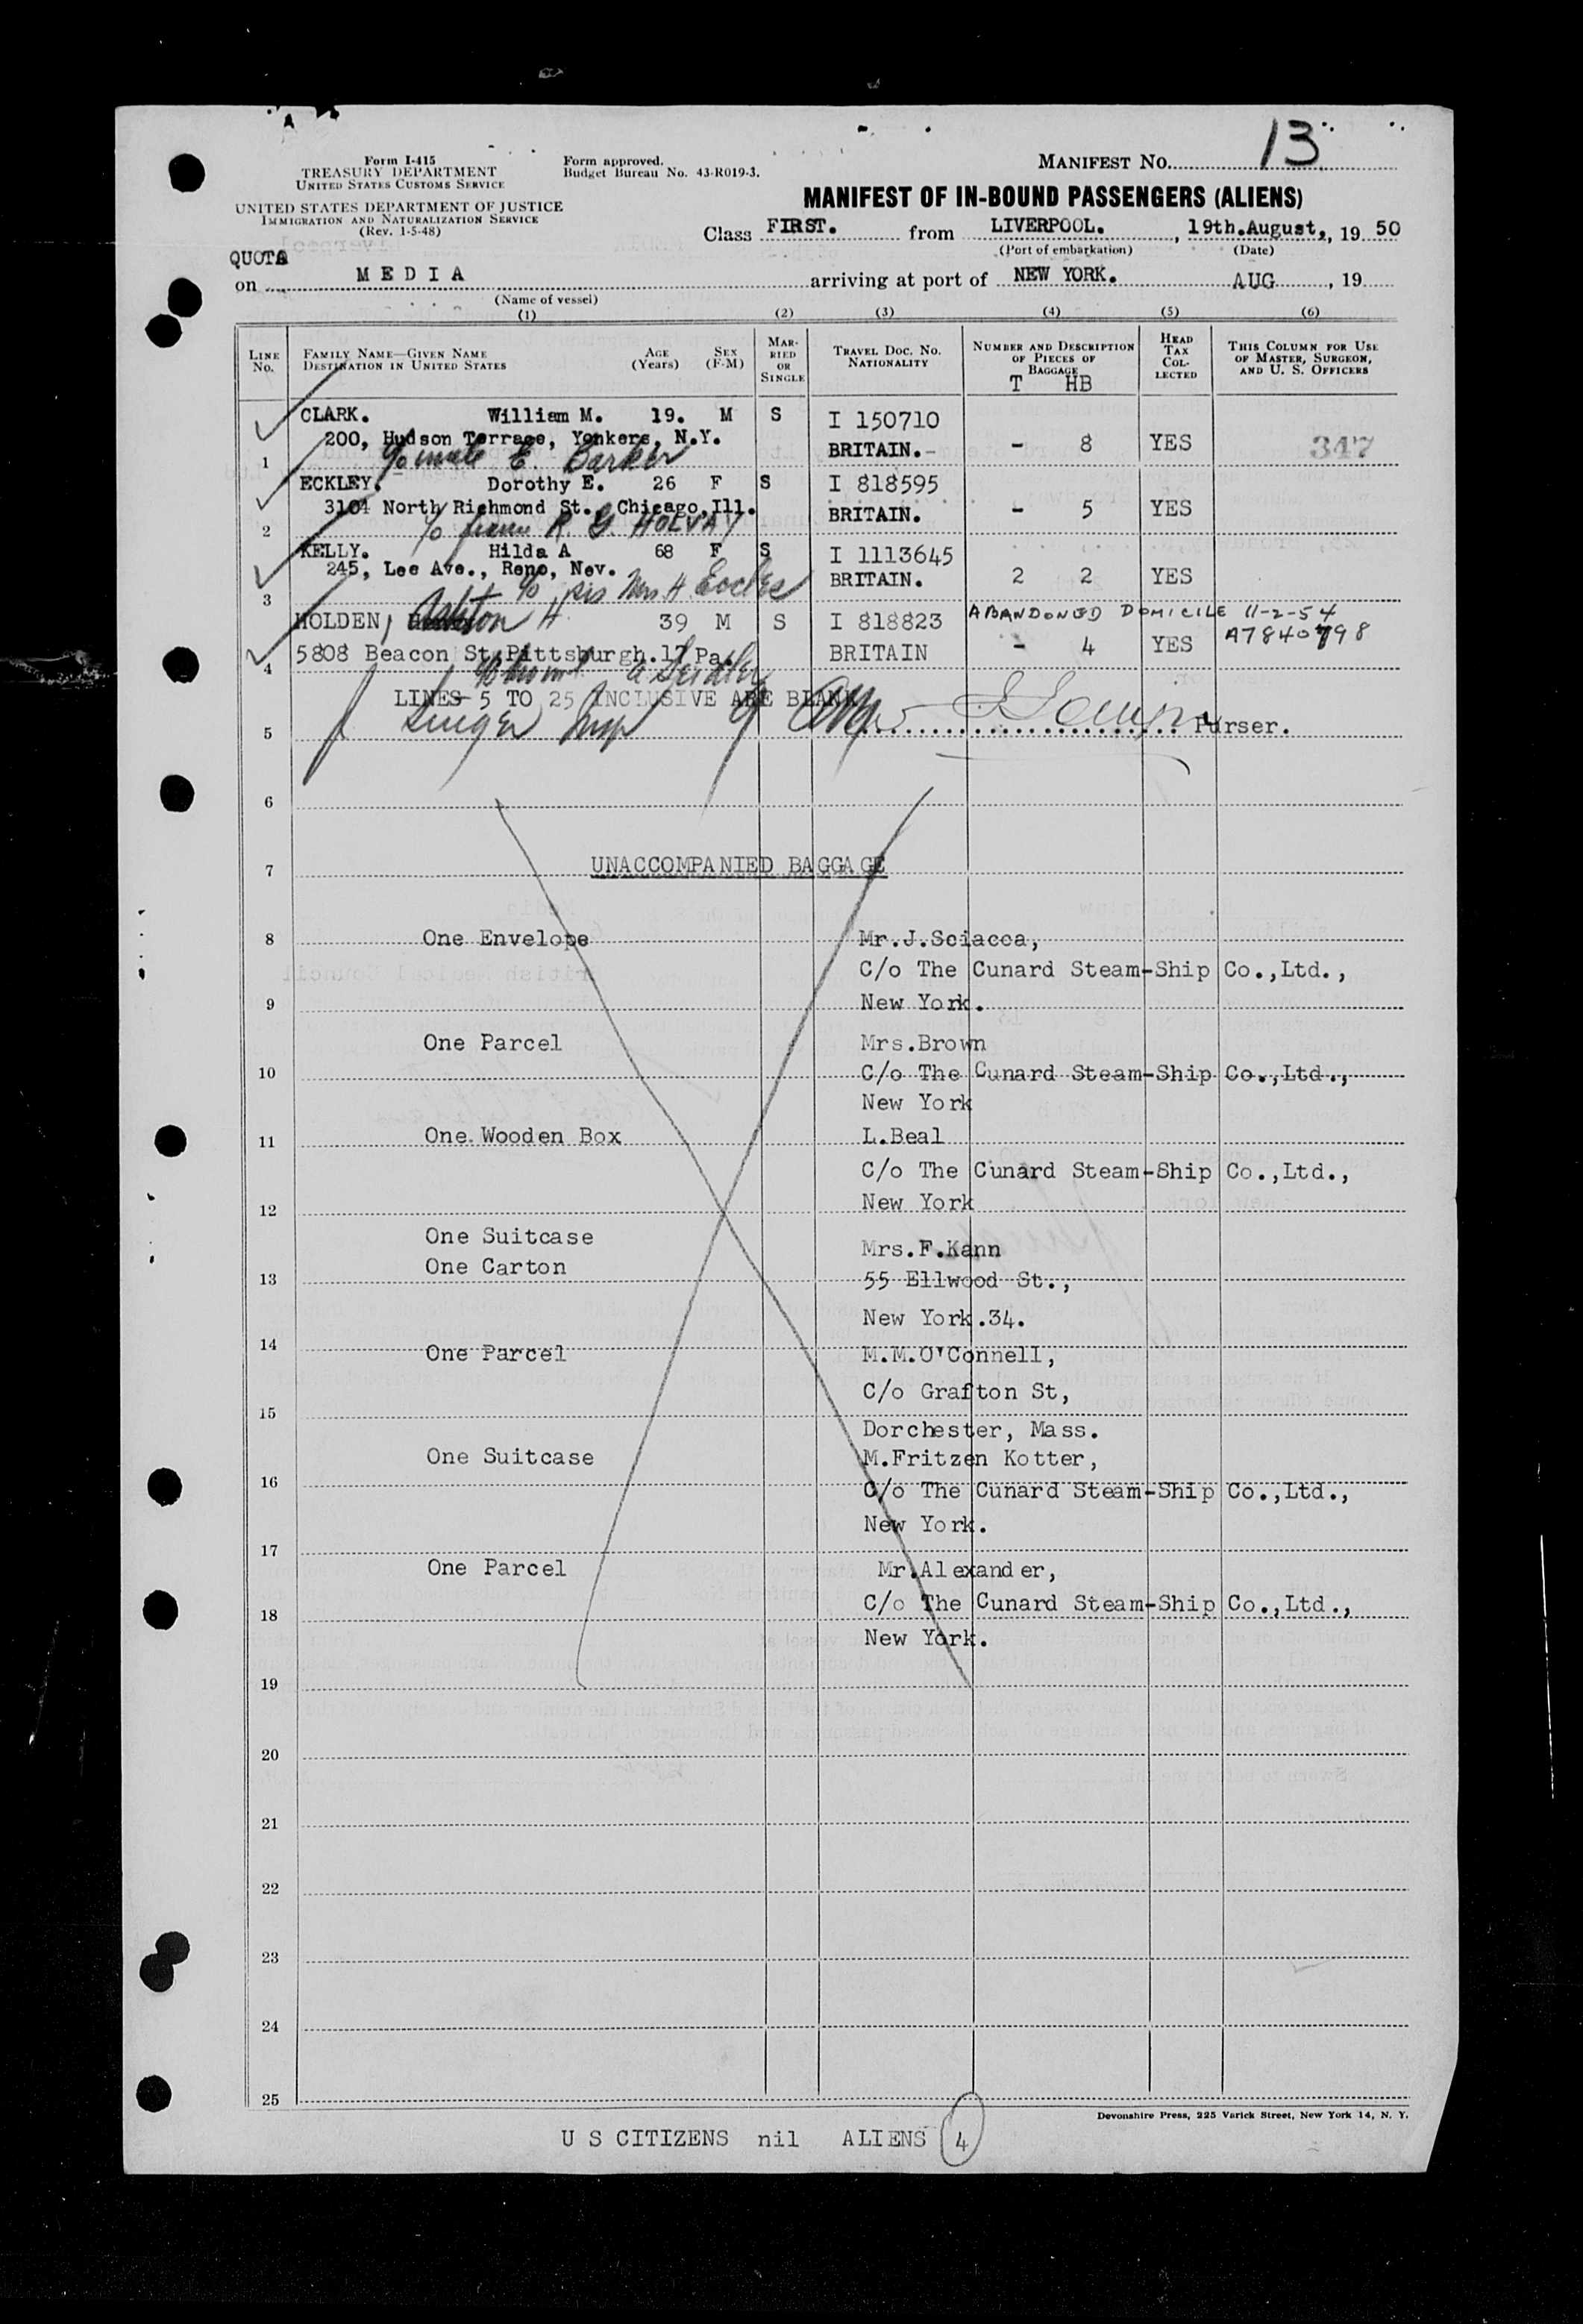 13
Form I-415
TREASURY DEPARTMENT
UNITED STATES CUSTOMS SERVICE
Form approved.
Budget Bureau No. 43-R019-3.
MANIFEST NO. 13
UNITED STATES DEPARTMENT OF JUSTICE
IMMIGRATION AND NATURALIZATION SERVICE
(Rev. 1-5-48)
MANIFEST OF IN-BOUND PASSENGERS (ALIENS)
Class FIRST. from LIVERPOOL. , 19th.August, , 19 50
(Port of embarkation) (Date)
QUOTA
on M E D I A arriving at port of NEW YORK. AUG , 19
(Name of vessel)
(1) (2) (3) (4) (5) (6)
LINE NO. FAMILY NAME—GIVEN NAME DESTINATION IN UNITED STATES AGE (Years) SEX (F-M) MARRIED OR SINGLE TRAVEL DOC. NO. NATIONALITY NUMBER AND DESCRIPTION OF PIECES OF BAGGAGE HEAD TAX COLLECTED THIS COLUMN FOR USE OF MASTER, SURGEON, AND U. S. OFFICERS
T HB
CLARK. William M. 19. M S I 150710
200, Hudson Terrace, Yonkers, N.Y. BRITAIN.- - 8 YES 347
1 c/o uncle E. Barker
ECKLEY. Dorothy E. 26 F S I 818595
3101 North Richmond St., Chicago,Ill. BRITAIN. - 5 YES
2 c/o R. G. HOLVAY
KELLY. Hilda A 68 F S I 1113645
245, Lee Ave., Reno, Nev. BRITAIN. 2 2 YES
3 c/o sis Mrs H. Eccles
HOLDEN, Ashton H 39 M S I 818823 ABANDONED DOMICILE 11-2-54
5808 Beacon St,Pittsburgh.17 Pa. BRITAIN - 4 YES A7840798
4 c/o
LINES 5 TO 25 INCLUSIVE ARE BLANK
5 Singer Insp Purser.
6
7 UNACCOMPANIED BAGGAGE
8 One Envelope Mr.J.Sciacca,
C/o The Cunard Steam-Ship Co.,Ltd.,
9 New York.
One Parcel Mrs.Brown
10 C/o The Cunard Steam-Ship Co.,Ltd.,
New York
11 One Wooden Box L.Beal
C/o The Cunard Steam-Ship Co.,Ltd.,
12 New York
One Suitcase Mrs.F.Kann
One Carton
13 55 Ellwood St.,
New York.34.
14 One Parcel M.M.O'Connell,
C/o Grafton St,
15
Dorchester, Mass.
One Suitcase M.Fritzen Kotter,
16 C/o The Cunard Steam-Ship Co.,Ltd.,
New York.
17
One Parcel Mr.Alexander,
18 C/o The Cunard Steam-Ship Co.,Ltd.,
New York.
19
20
21
22
23
24
25
Devonshire Press, 225 Varick Street, New York 14, N. Y.
U S CITIZENS nil ALIENS 4